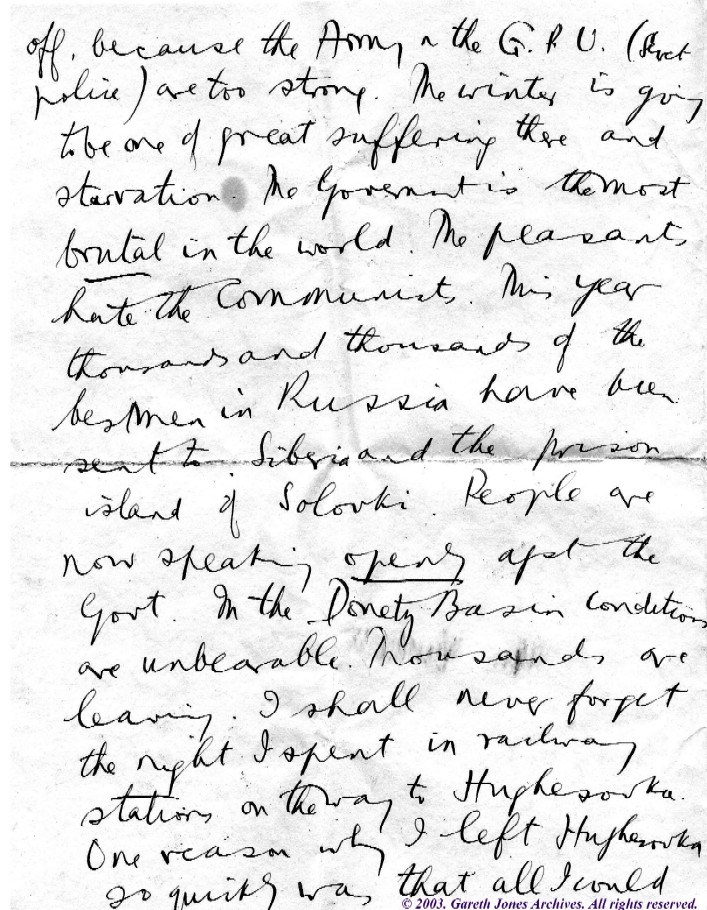 off, because the Army & the G.P.U. (Secret
police) are too strong. The winter is going
to be one of great suffering there and
starvation. The Government is the most
brutal in the world. The peasants
hate the Communists. This year
thousands and thousands of the
best men in Russia have been
sent to Siberia and the prison
island of Solovki. People are
now speaking openly agst the
Govt. In the Donetz Basin conditions
are unbearable. Thousands are
leaving. I shall never forget
the night I spent in railway
station on the way to Hughesovka.
One reason why I left Hughesovka
so quickly was that all I could
© 2003. Gareth Jones Archives. All rights reserved.